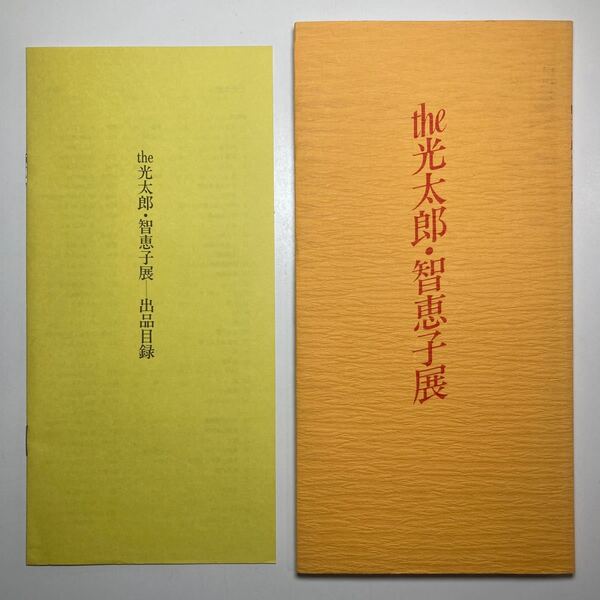 the光太郎・智恵子展―出品目録
the光太郎・智恵子展